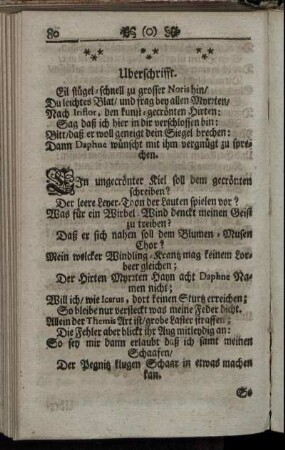 80 (o)
Uberschrifft.
Eil flügel-schnell zu grosser Noris hin/
Du leichtes Blat/ und frag bey allen Myrrten/
Nach Iriflor, den kunst-gecrönten Hirten:
Sag daß ich hier in dir verschlossen bin:
Bitt/ daß er woll geneigt dein Siegel brechen:
Dann Daphne wünscht mit ihm vergnügt zu spre-
chen.
EIn ungecrönter Kiel soll dem gecrönten
schreiben?
Der leere Leyer-Thon der Lauten spielen vor?
Was für ein Wirbel-Wind denckt meinen Geist
zu treiben?
Daß er sich nahen soll dem Blumen-Musen
Chor?
Mein welcker Windling-Krantz mag keinem Lor-
beer gleichen;
Der Hirten Myrrten Hayn acht Daphne Na-
men nicht;
Will ich/ wie Icarus, dort keinen Sturtz erreichen;
So bleibe nur versteckt was meine Feder dicht.
Allein der Themis Art ist/ grobe Laster straffen:
Die Fehler aber blickt ihr Aug mitleydig an:
So sey mir dann erlaubt daß ich samt meinen
Schaafen/
Der Pegnitz klugen Schaar in etwas machen
kan.
So